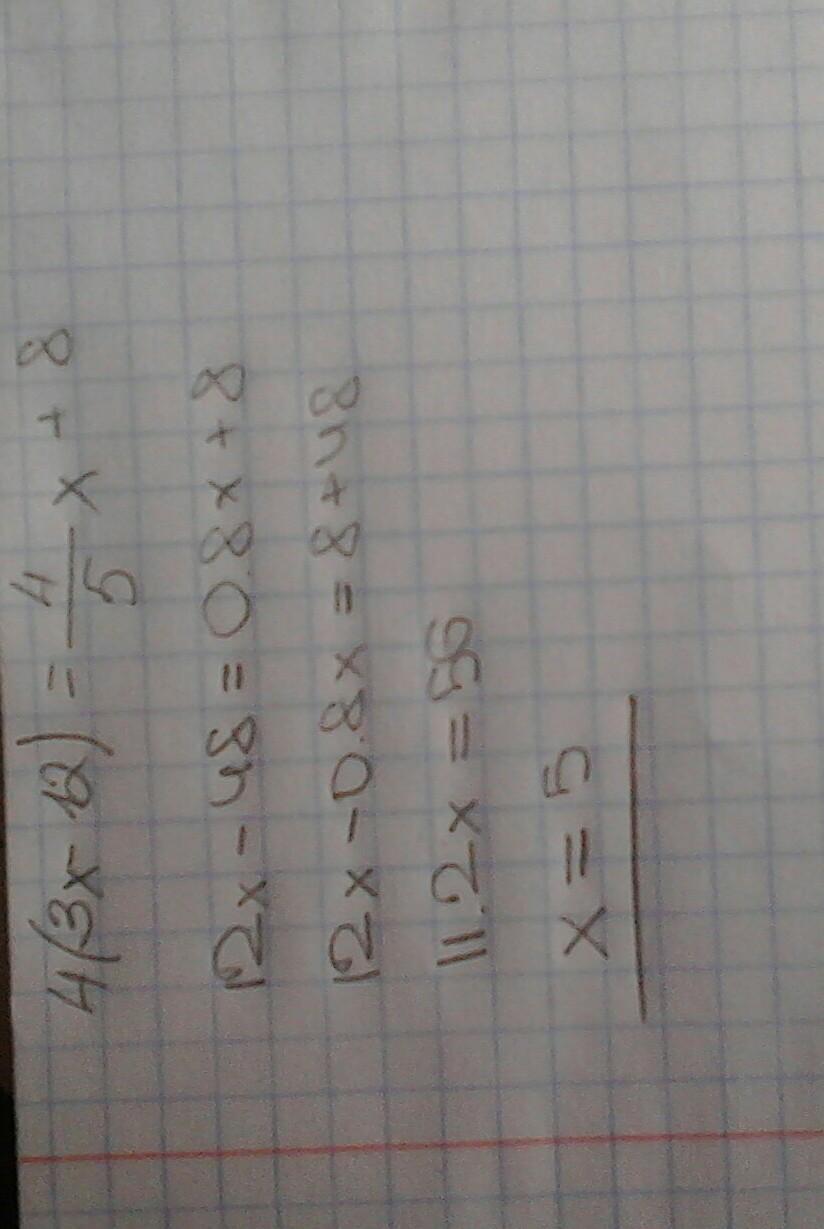 4(3x-12) = 4/5 x + 8
12x - 48 = 0.8x + 8
12x - 0.8x = 8 + 48
11.2x = 56
x = 5